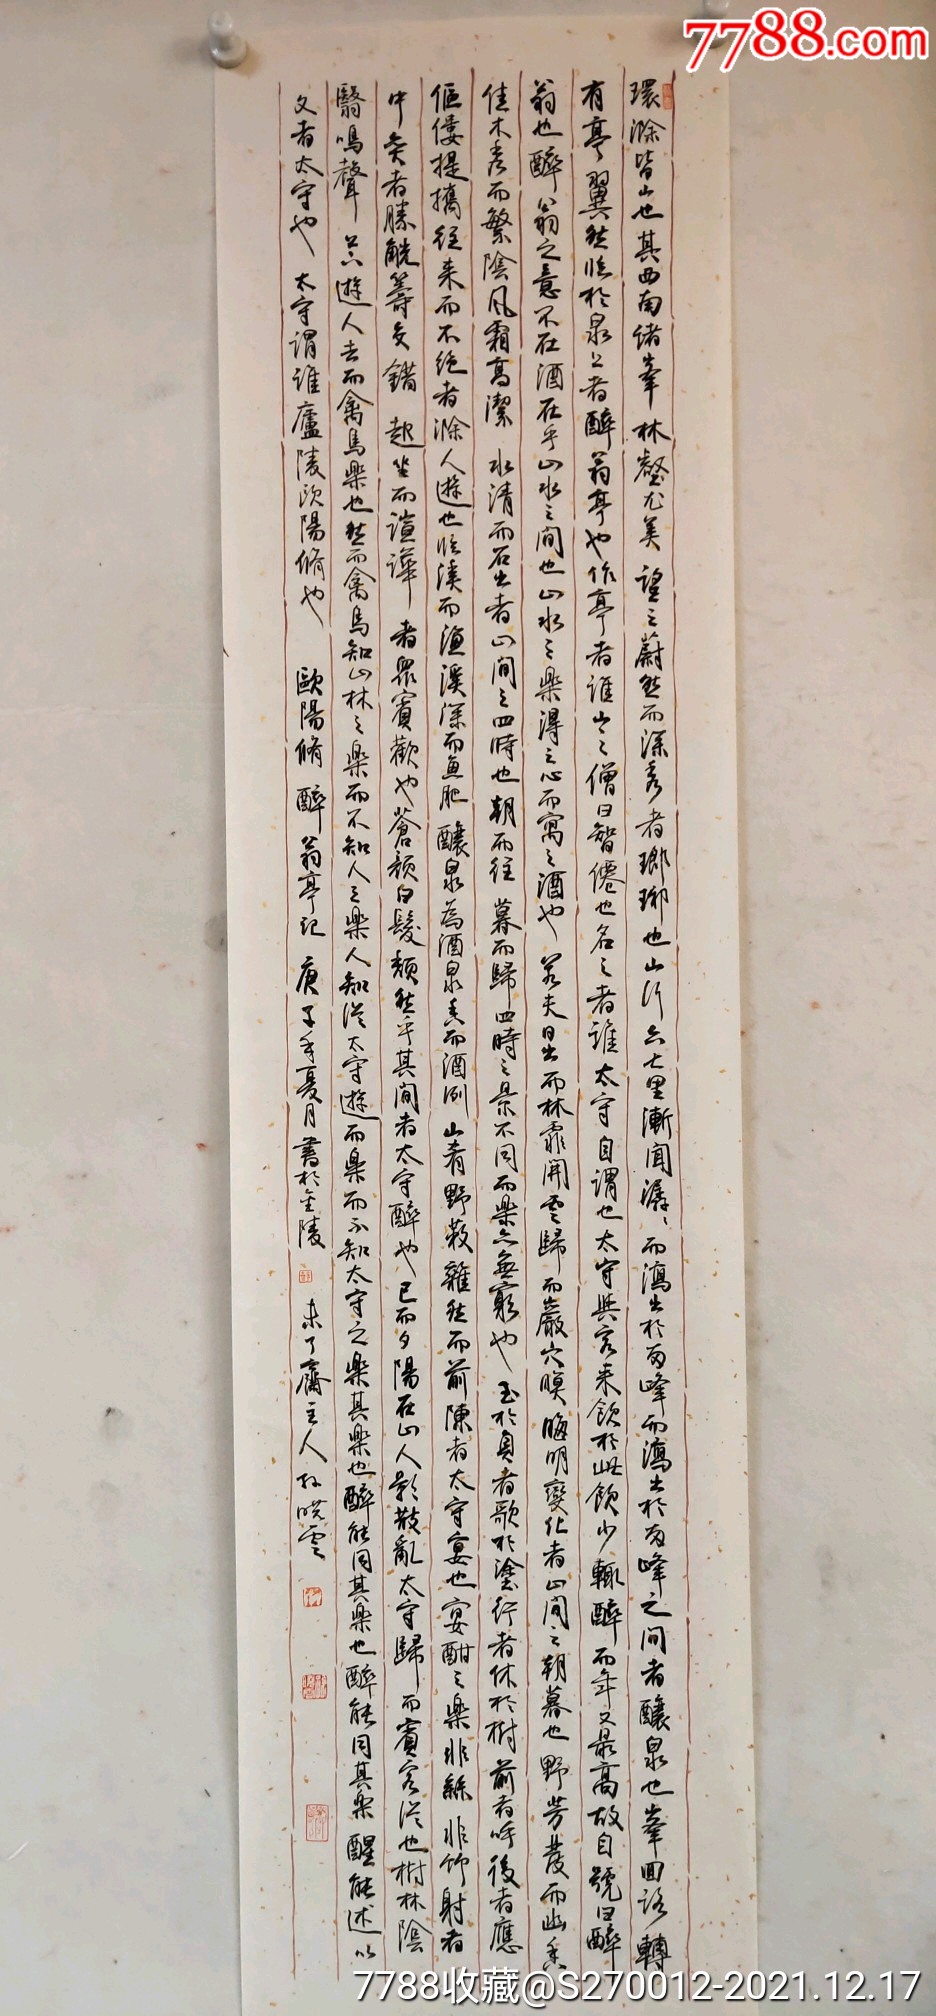 7788.com
環滁皆山也其西南諸峯林壑尤美望之蔚然而深秀者瑯琊也山行六七里漸聞潺〻而瀉出於兩峰而瀉出於兩峰之間者釀泉也峯回路轉
有亭翼然臨於泉上者醉翁亭也作亭者誰山之僧曰智僊也名之者誰太守自謂也太守與客来飲於此飲少輒醉而年又最高故自號曰醉
翁也醉翁之意不在酒在乎山水之間也山水之樂得之心而寓之酒也若夫日出而林霏開雲歸而巖穴暝晦明變化者山間之朝暮也野芳發而幽香
佳木秀而繁陰風霜高潔水清而石出者山間之四時也朝而往暮而歸四時之景不同而樂亦無窮也至於負者歌於塗行者休於樹前者呼後者應
傴僂提攜往来而不绝者滁人遊也臨溪而漁溪深而魚肥釀泉為酒泉香而酒洌山肴野蔌雜然而前陳者太守宴也宴酣之樂非絲非竹射者
中奕者勝觥籌交錯起坐而諠譁者眾賓歡也蒼顏白髮頹然乎其間者太守醉也已而夕陽在山人影散亂太守歸而賓客從也樹林陰
翳鳴聲上下遊人去而禽鳥樂也然而禽鳥知山林之樂而不知人之樂人知從太守遊而樂而不知太守之樂其樂也醉能同其樂也醉能同其樂醒能述以
文者太守也太守謂誰廬陵欧陽脩也 歐陽脩醉翁亭記 庚子年夏月書於金陵 未了齋主人孙晓雲
7788收藏@S270012-2021.12.17